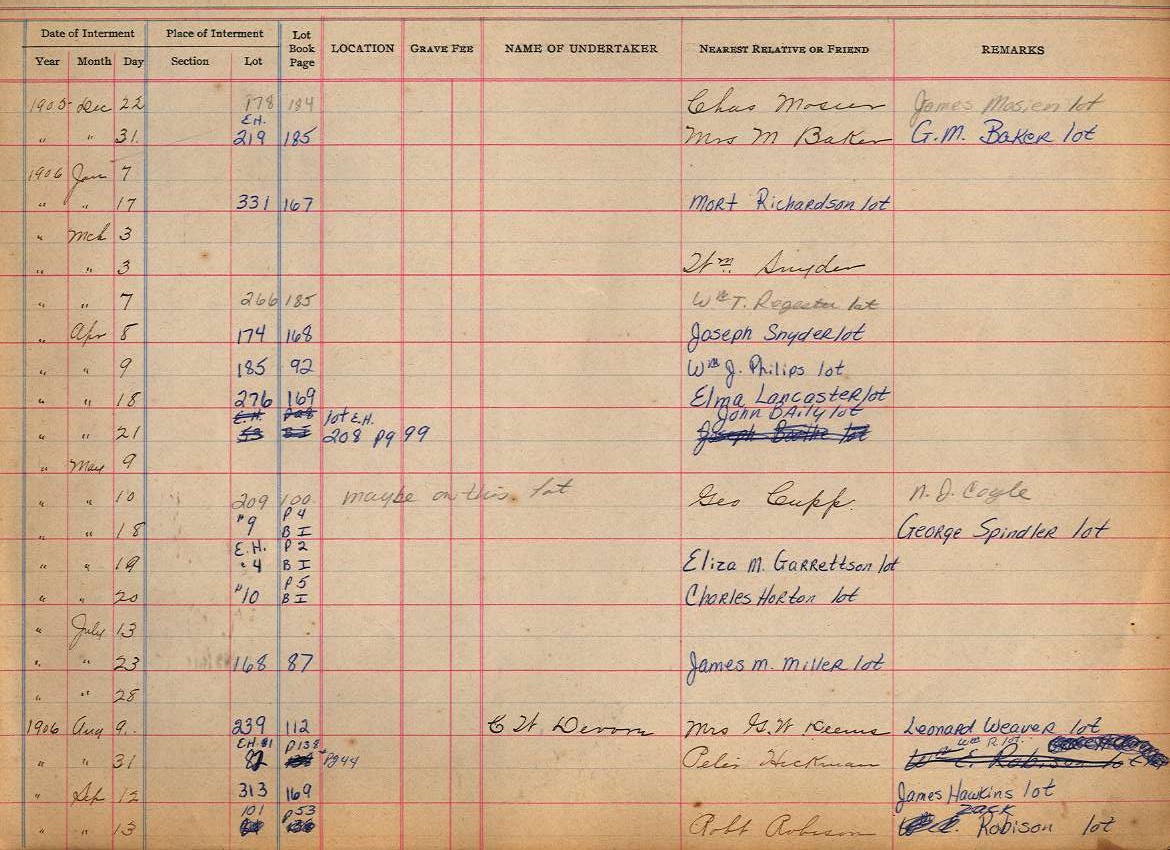 Date of Interment Place of Interment Lot Book Page LOCATION GRAVE FEE NAME OF UNDERTAKER NEAREST RELATIVE OR FRIEND REMARKS
Year Month Day Section Lot
1905 Dec 22 178 184 Chas Mosier James Mosier lot
E.H.
" " 31. 219 185 Mrs M Baker G.M. Baker lot
1906 Jan 7
" " 17 331 167 Mort Richardson lot
" Mch 3
" " 3 Wm. Snyder
" " 7 266 185 Wm T. lot
" Apr 8 174 168 Joseph Snyder lot
" " 9 185 92 Wm J. Philips lot
" " 18 276 169 Elma Lancaster lot
E.H. lot E.H. John DAily lot
" " 21 53 208 pg 99 Joseph lot
" May 9
" " 10 209 100 maybe on this lot Geo Cupp. N. J. Coyle
P 4
" " 18 "9 B I George Spindler lot
E.H. P 2
" " 19 "4 B I Eliza M. Garrettson lot
P 5
" " 20 "10 B I Charles Horton lot
" July 13
" " 23 168 87 James M. Miller lot
" " 28
1906 Aug 9. 239 112 C W Devore Mrs G.W Deems Leonard Weaver lot
E.H. 81 P138 Wm R lot
" " 31 82 Pg 44 Peter Hickman Wm E. Robison lot
" Sep 12 313 169 James Hawkins lot
101 P53 Zack
" " 13 Robt Robison Robison lot